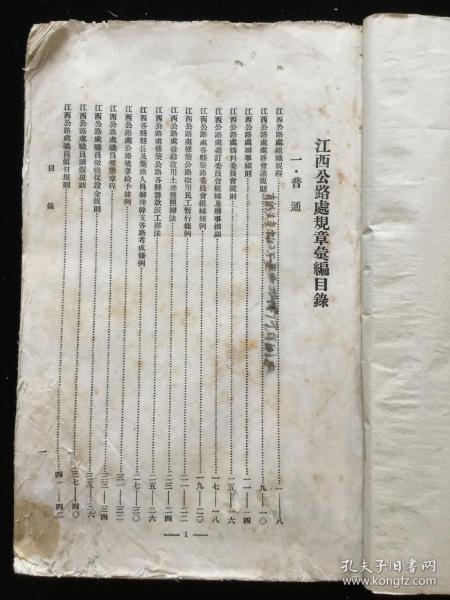 江西公路處規章彙編目錄
一·普通
江西公路處組織規程 一—八
江西公路處處務會議規則 九—一〇
江西公路處辦事細則 一一—一四
江西公路處購料委員會規則 一五—一六
江西公路處審訂委員會組織及辦事細則 一七—一八
江西公路處各縣築路委員會組織條例 一九—二〇
江西公路處修築公路徵用民工暫行條例 二一—二二
江西公路處發給收用土地證照辦法 二三—二四
江西公路處修築公路各縣籌款派工辦法 二五—二六
江西各縣縣長及築路人員辦理幹支各路考成條例 二七—三〇
江西公路處公路獎章給予條例 三一—三二
江西公路處職員獎懲章程 三三—三四
江西公路處職員繳繳保證金規則 三五—三六
江西公路處職員請假規則 三七—四〇
江西公路處職員值日規則 四一—四二
目錄
一
— 1 —
孔夫子旧书网
book.kongfz.com